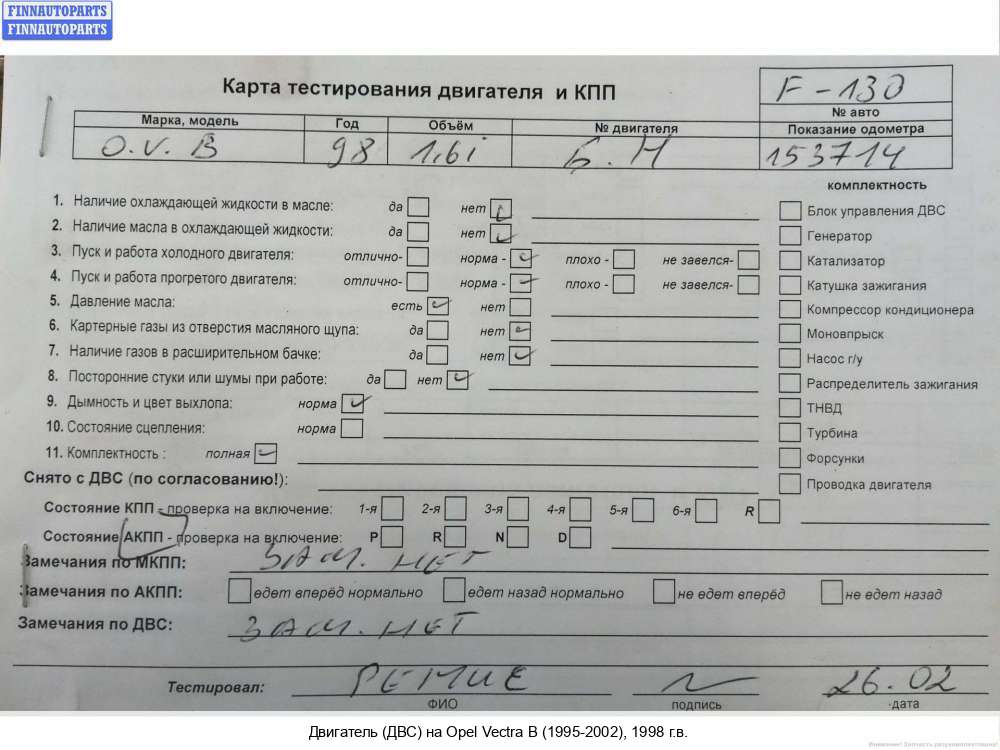 FINNAUTOPARTS
FINNAUTOPARTS
Карта тестирования двигателя и КПП
F-130
№ авто
Марка, модель Год Объём № двигателя Показание одометра
O.V. B 98 1,6i Б.Н 153714
комплектность
1. Наличие охлаждающей жидкости в масле: да нет Блок управления ДВС
2. Наличие масла в охлаждающей жидкости: да нет Генератор
3. Пуск и работа холодного двигателя: отлично- норма - плохо - не завелся- Катализатор
4. Пуск и работа прогретого двигателя: отлично- норма - плохо - не завелся- Катушка зажигания
5. Давление масла: есть нет Компрессор кондиционера
6. Картерные газы из отверстия масляного щупа: да нет Моновпрыск
7. Наличие газов в расширительном бачке: да нет Насос г/у
8. Посторонние стуки или шумы при работе: да нет Распределитель зажигания
9. Дымность и цвет выхлопа: норма ТНВД
10. Состояние сцепления: норма Турбина
11. Комплектность : полная Форсунки
Снято с ДВС (по согласованию!): Проводка двигателя
Состояние КПП - проверка на включение: 1-я 2-я 3-я 4-я 5-я 6-я R
Состояние АКПП - проверка на включение: P R N D
Замечания по МКПП: ЗАМ. НЕТ
Замечания по АКПП: едет вперёд нормально едет назад нормально не едет вперёд не едет назад
Замечания по ДВС: ЗАМ. НЕТ
Тестировал: 26.02
ФИО подпись дата
Двигатель (ДВС) на Opel Vectra B (1995-2002), 1998 г.в.
Внимание! Запчасть разукомплектована!